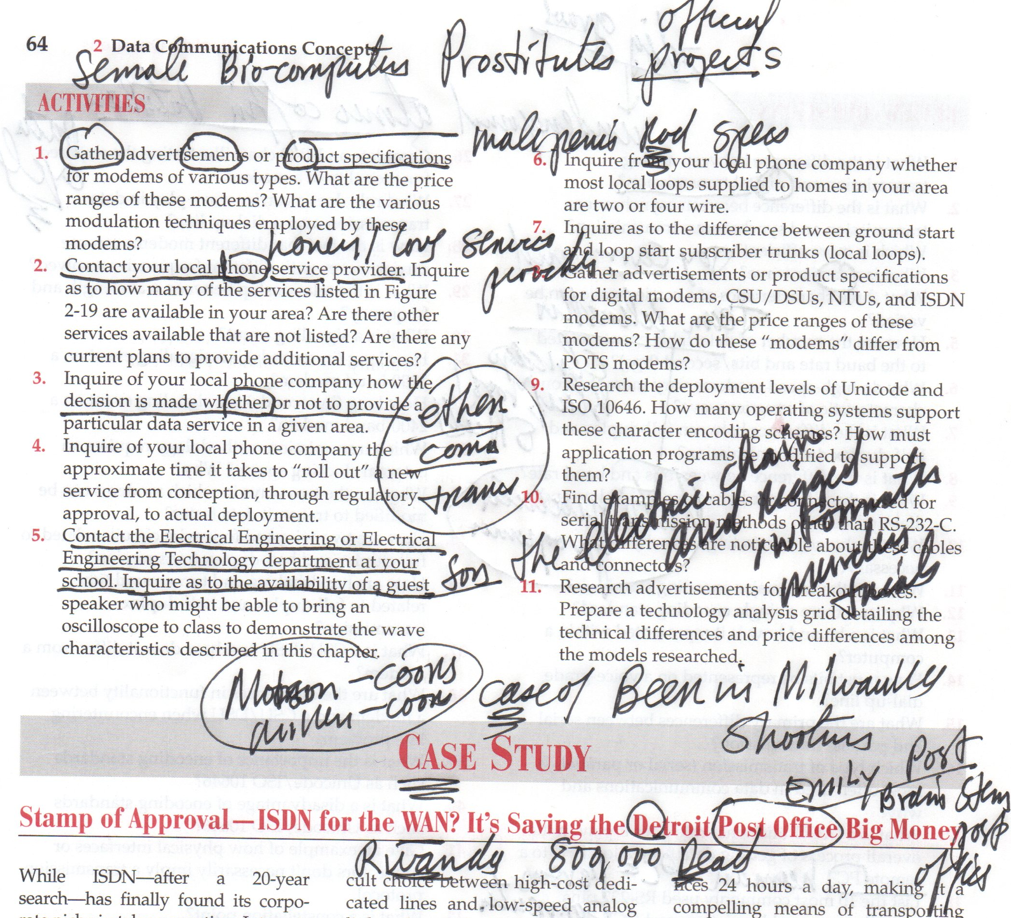 official
64 2 Data Communications Concepts
Semale Bio-computers Prostitutes projects
ACTIVITIES
male penis Rod specs
1. Gather advertisements or product specifications
for modems of various types. What are the price
ranges of these modems? What are the various
modulation techniques employed by these
modems?
love service
2. Contact your local phone service provider. Inquire
as to how many of the services listed in Figure
2-19 are available in your area? Are there other
services available that are not listed? Are there any
current plans to provide additional services?
3. Inquire of your local phone company how the
decision is made whether or not to provide a
particular data service in a given area.
4. Inquire of your local phone company the
approximate time it takes to "roll out" a new
service from conception, through regulatory
approval, to actual deployment.
5. Contact the Electrical Engineering or Electrical
Engineering Technology department at your
school. Inquire as to the availability of a guest
speaker who might be able to bring an
oscilloscope to class to demonstrate the wave
characteristics described in this chapter.
ether
coma
trans
6. Inquire from your local phone company whether
most local loops supplied to homes in your area
are two or four wire.
7. Inquire as to the difference between ground start
and loop start subscriber trunks (local loops).
8. Gather advertisements or product specifications
for digital modems, CSU/DSUs, NTUs, and ISDN
modems. What are the price ranges of these
modems? How do these "modems" differ from
POTS modems?
9. Research the deployment levels of Unicode and
ISO 10646. How many operating systems support
these character encoding schemes? How must
application programs be modified to support
them?
10. Find examples of cables or connectors used for
serial transmission methods other than RS-232-C.
What differences are noticeable about these cables
and connectors?
11. Research advertisements for breakout boxes.
Prepare a technology analysis grid detailing the
technical differences and price differences among
the models researched.
for the electric chair
and
trials
Coors
coors
case of Been in Milwaukee
Shooting
CASE STUDY
EMILY Post
Brain Stem
Stamp of Approval—ISDN for the WAN? It's Saving the Detroit Post Office Big Money
post
office
Rwandy 800,000 Death
While ISDN—after a 20-year
search—has finally found its corpo-
cult choice between high-cost dedi-
cated lines and low-speed analog
fices 24 hours a day, making it a
compelling means of transporting